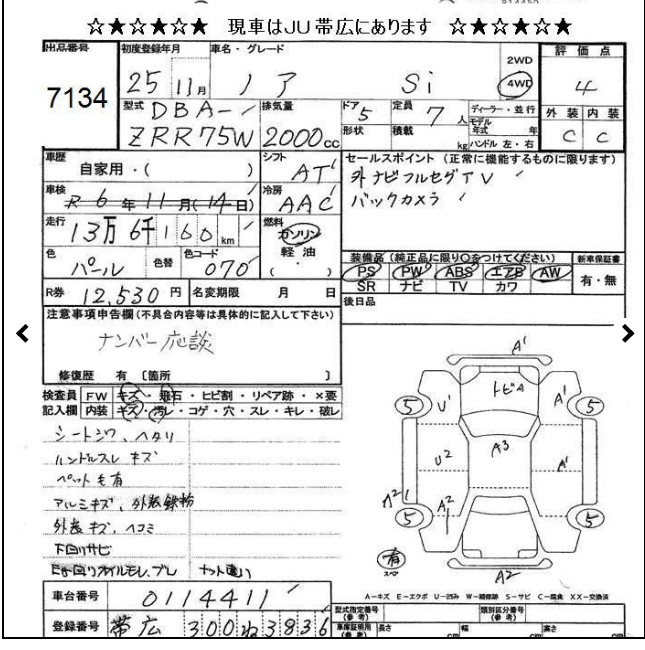 ☆★☆★☆★ 現車はJU帯広にあります ☆★☆★☆★
出品番号 初度登録年月 車名・グレード 2WD 4WD 評価点
7134 25 11月 ノア Si 4
型式 DBA- 排気量 ドア 5 定員 7人 ディーラー・並行 外装 内装
ZRR75W 2000cc 形状 積載 kg モデル年式 年 ハンドル 左・右 C C
車歴 自家用・( ) シフト AT セールスポイント(正常に機能するものに限ります)
車検 R 6年11月(14日) 冷房 AAC 外ナビフルセグTV
バックカメラ
走行 13万6千160km 燃料 ガソリン 軽油 ( )
色 パール 色替 色コード 070 装備品(純正品に限り○をつけてください) 新車保証書
PS PW ABS エアB AW 有・無
SR ナビ TV カワ
R券 12,530円 名変期限 月 日 後日品
注意事項申告欄(不具合内容等は具体的に記入して下さい)
ナンバー応談
修復歴 有 〔箇所 〕
検査員 FW キズ・飛石・ヒビ割・リペア跡・×要
記入欄 内装 キズ・汚レ・コゲ・穴・スレ・キレ・破レ
シートシワ、ヘタリ
ハンドルスレ キズ
ペット毛有
アルミキズ、外装鉄粉
外装キズ、ヘコミ
下回りサビ
ナット違い
A1
トビA
5 U1 A1 5
A3
U2 A1
A2 A2
5 5
有
スペア
A2
A-キズ E-エクボ U-凹み W-補修跡 S-サビ C-腐食 XX-交換済
車台番号 0114411 型式指定番号(参考) 類別区分番号(参考)
登録番号 帯広 300 ね 3836 車庫証明用(参考) 長さ cm 幅 cm 高さ cm